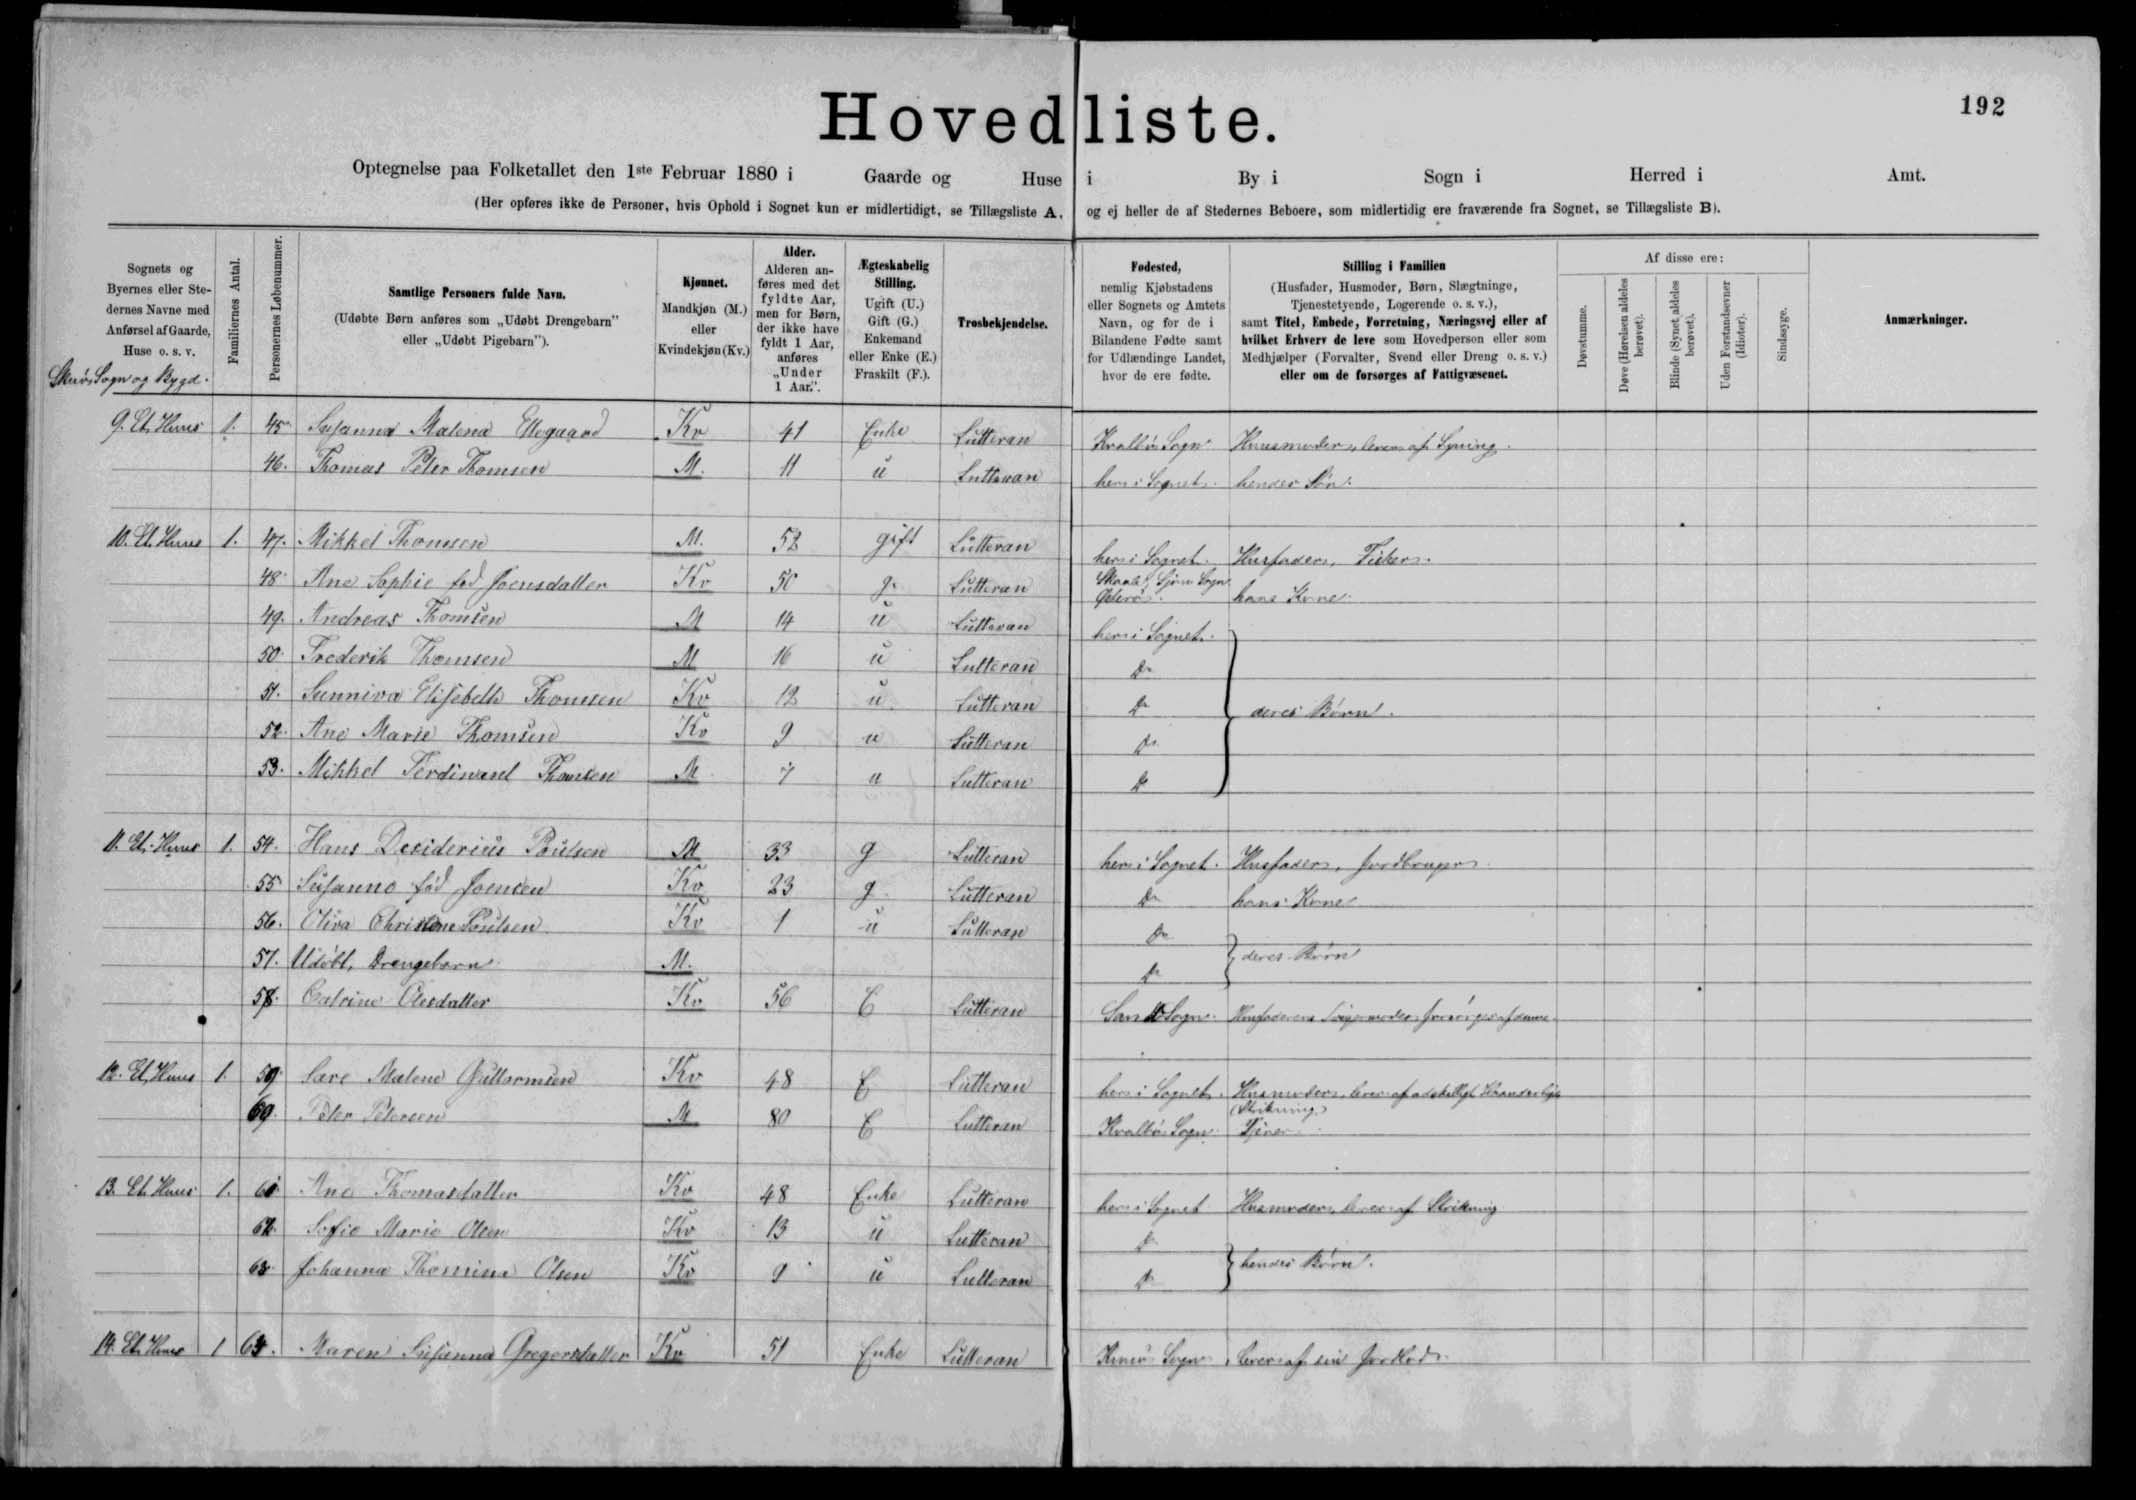 192
Hovedliste.
Optegnelse paa Folketallet den 1ste Februar 1880 i Gaarde og Huse i By i Sogn i Herred i Amt.
(Her opføres ikke de Personer, hvis Ophold i Sognet kun er midlertidigt, se Tillægsliste A, og ej heller de af Stedernes Beboere, som midlertidig ere fraværende fra Sognet, se Tillægsliste B).
Sognets og
Byernes eller Ste-
dernes Navne med
Anførsel af Gaarde,
Huse o. s. v.
Familiernes Antal.
Personernes Løbenummer.
Samtlige Personers fulde Navn.
(Udøbte Børn anføres som „Udøbt Drengebarn"
eller „Udøbt Pigebarn").
Kjønnet.
Mandkjøn (M.)
eller
Kvindekjøn (Kv.)
Alder.
Alderen an-
føres med det
fyldte Aar,
men for Børn,
der ikke have
fyldt 1 Aar,
anføres
„Under
1 Aar.".
Ægteskabelig
Stilling.
Ugift (U.)
Gift (G.)
Enkemand
eller Enke (E.)
Fraskilt (F.).
Trosbekjendelse.
Fødested,
nemlig Kjøbstadens
eller Sognets og Amtets
Navn, og for de i
Bilandene Fødte samt
for Udlændinge Landet,
hvor de ere fødte.
Stilling i Familien
(Husfader, Husmoder, Børn, Slægtninge,
Tjenestetyende, Logerende o. s. v.),
samt Titel, Embede, Forretning, Næringsvej eller af
hvilket Erhverv de leve som Hovedperson eller som
Medhjælper (Forvalter, Svend eller Dreng o. s. v.)
eller om de forsørges af Fattigvæsenet.
Af disse ere:
Døvstumme.
Døve (Hørelsen aldeles berøvet).
Blinde (Synet aldeles berøvet).
Uden Forstandsevner (Idioter).
Sindssyge.
Anmærkninger.
Skuø Sogn og Bygd.
9. Et Huus 1. 45 Susanna Malena Ellegaard Kv 41 Enke Lutteran Kvalbø Sogn Huusmoder, lever af Syning.
46. Thomas Peter Thomsen M. 11 u Lutteran her i Sognet. hendes Søn.
10. Et Huus 1. 47. Mikkel Thomsen M. 52 gift Lutteran her i Sognet. Husfader, Fisker.
48 Ane Sophie fød Joensdatter Kv 50 g. Lutteran Skaale, Sjov Sogn Østerø. hans Kone.
49. Andreas Thomsen M 14 u Lutteran her i Sognet.
50. Frederik Thomsen M 16 u Lutteran Do
51. Sunniva Elisebeth Thomsen Kv 12 u Lutteran Do deres Børn.
52. Ane Marie Thomsen Kv 9 u Lutteran Do
53. Mikkel Ferdinand Thomsen M 7 u Lutteran Do
11. Et Huus 1. 54. Hans Desiderius Poulsen M 33 g Lutteran her i Sognet. Husfader, Jordbruger
55 Susanne fød Joensen Kv 23 g Lutteran Do hans Kone
56. Oliva Christine Poulsen Kv 1 u Lutteran Do
57. Udøbt, Drengebarn M. Do deres Børn
58. Catrine Olesdatter Kv 56 E Lutteran Sandø Sogn. Husfaderens Svigermoder forsørges af denne.
12. Et Huus 1. 59 Sare Malene Guttormsen Kv 48 E Lutteran her i Sognet. Husmoder, lever af adskelligt
(Strikning)
60. Peter Petersen M 80 E Lutteran Kvalbø Sogn Tjener
13. Et Huus 1. 61 Ane Thomasdatter Kv 48 Enke Lutteran her i Sognet Husmoder, lever af Strikning
62. Sofie Marie Olsen Kv 13 u Lutteran Do
63. Johanna Thomina Olsen Kv 9 u Lutteran Do hendes Børn.
14. Et Huus 1 64. Maren Susanna Gregorsdatter Kv 51 Enke Lutteran Sogn lever af sin Jordlod.